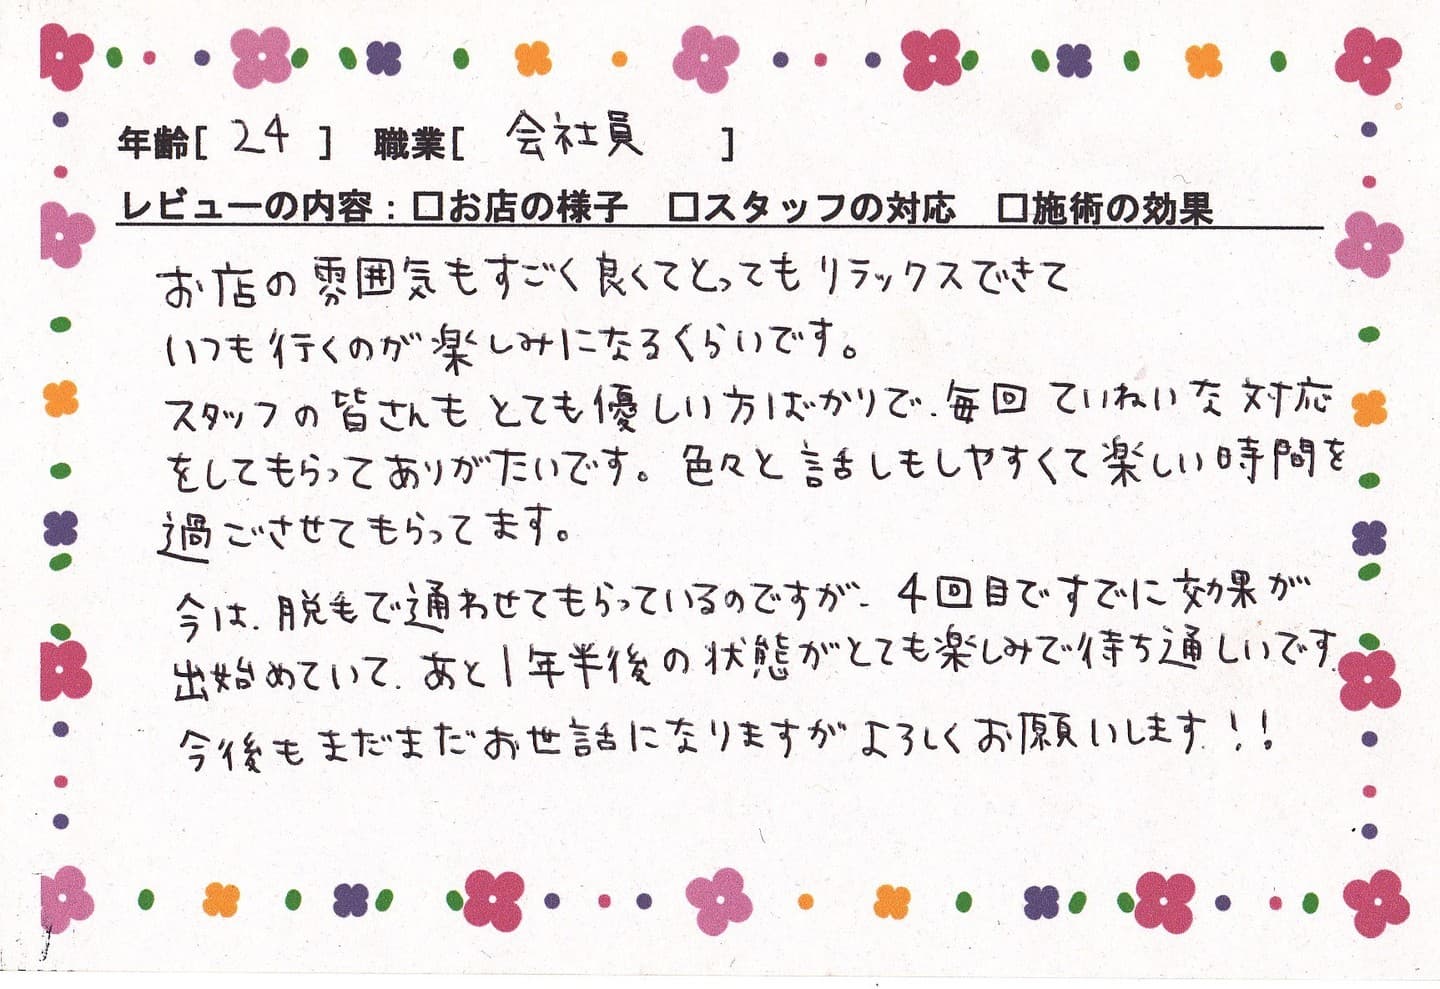 年齢[ 24 ] 職業[ 会社員 ]
レビューの内容：□お店の様子 □スタッフの対応 □施術の効果
お店の雰囲気もすごく良くてとってもリラックスできて
いつも行くのが楽しみになるくらいです。
スタッフの皆さんもとても優しい方ばかりで、毎回ていねいな対応
をしてもらってありがたいです。色々と話しもしやすくて楽しい時間を
過ごさせてもらってます。
今は、脱毛で通わせてもらっているのですが、4回目ですでに効果が
出始めていて、あと1年半後の状態がとても楽しみで待ち通しいです。
今後もまだまだお世話になりますがよろしくお願いします!!